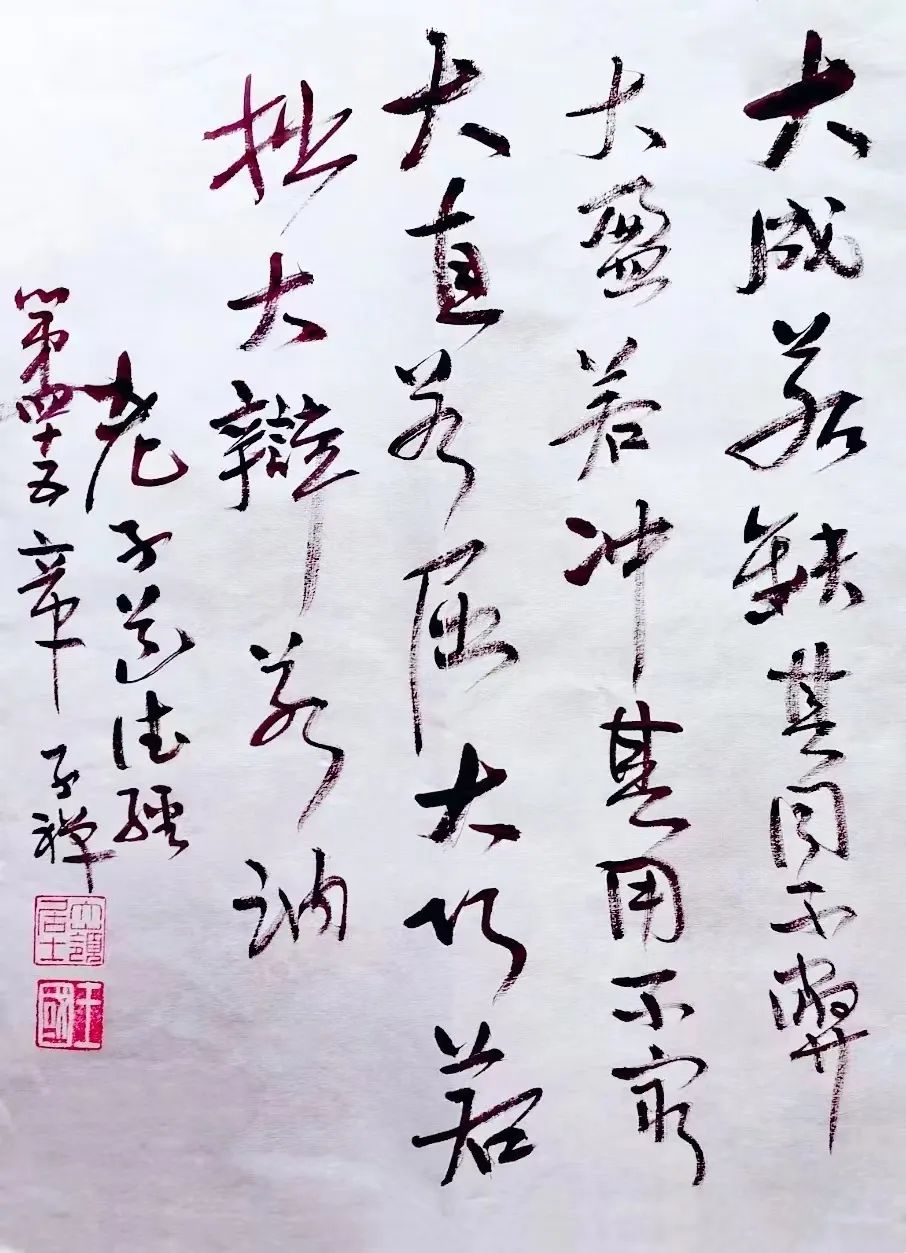 大成若缺其用不弊
大盈若冲其用不穷
大直若屈大巧若
拙大辩若讷
老子道德经
第四十五章 子禅
居士
王國